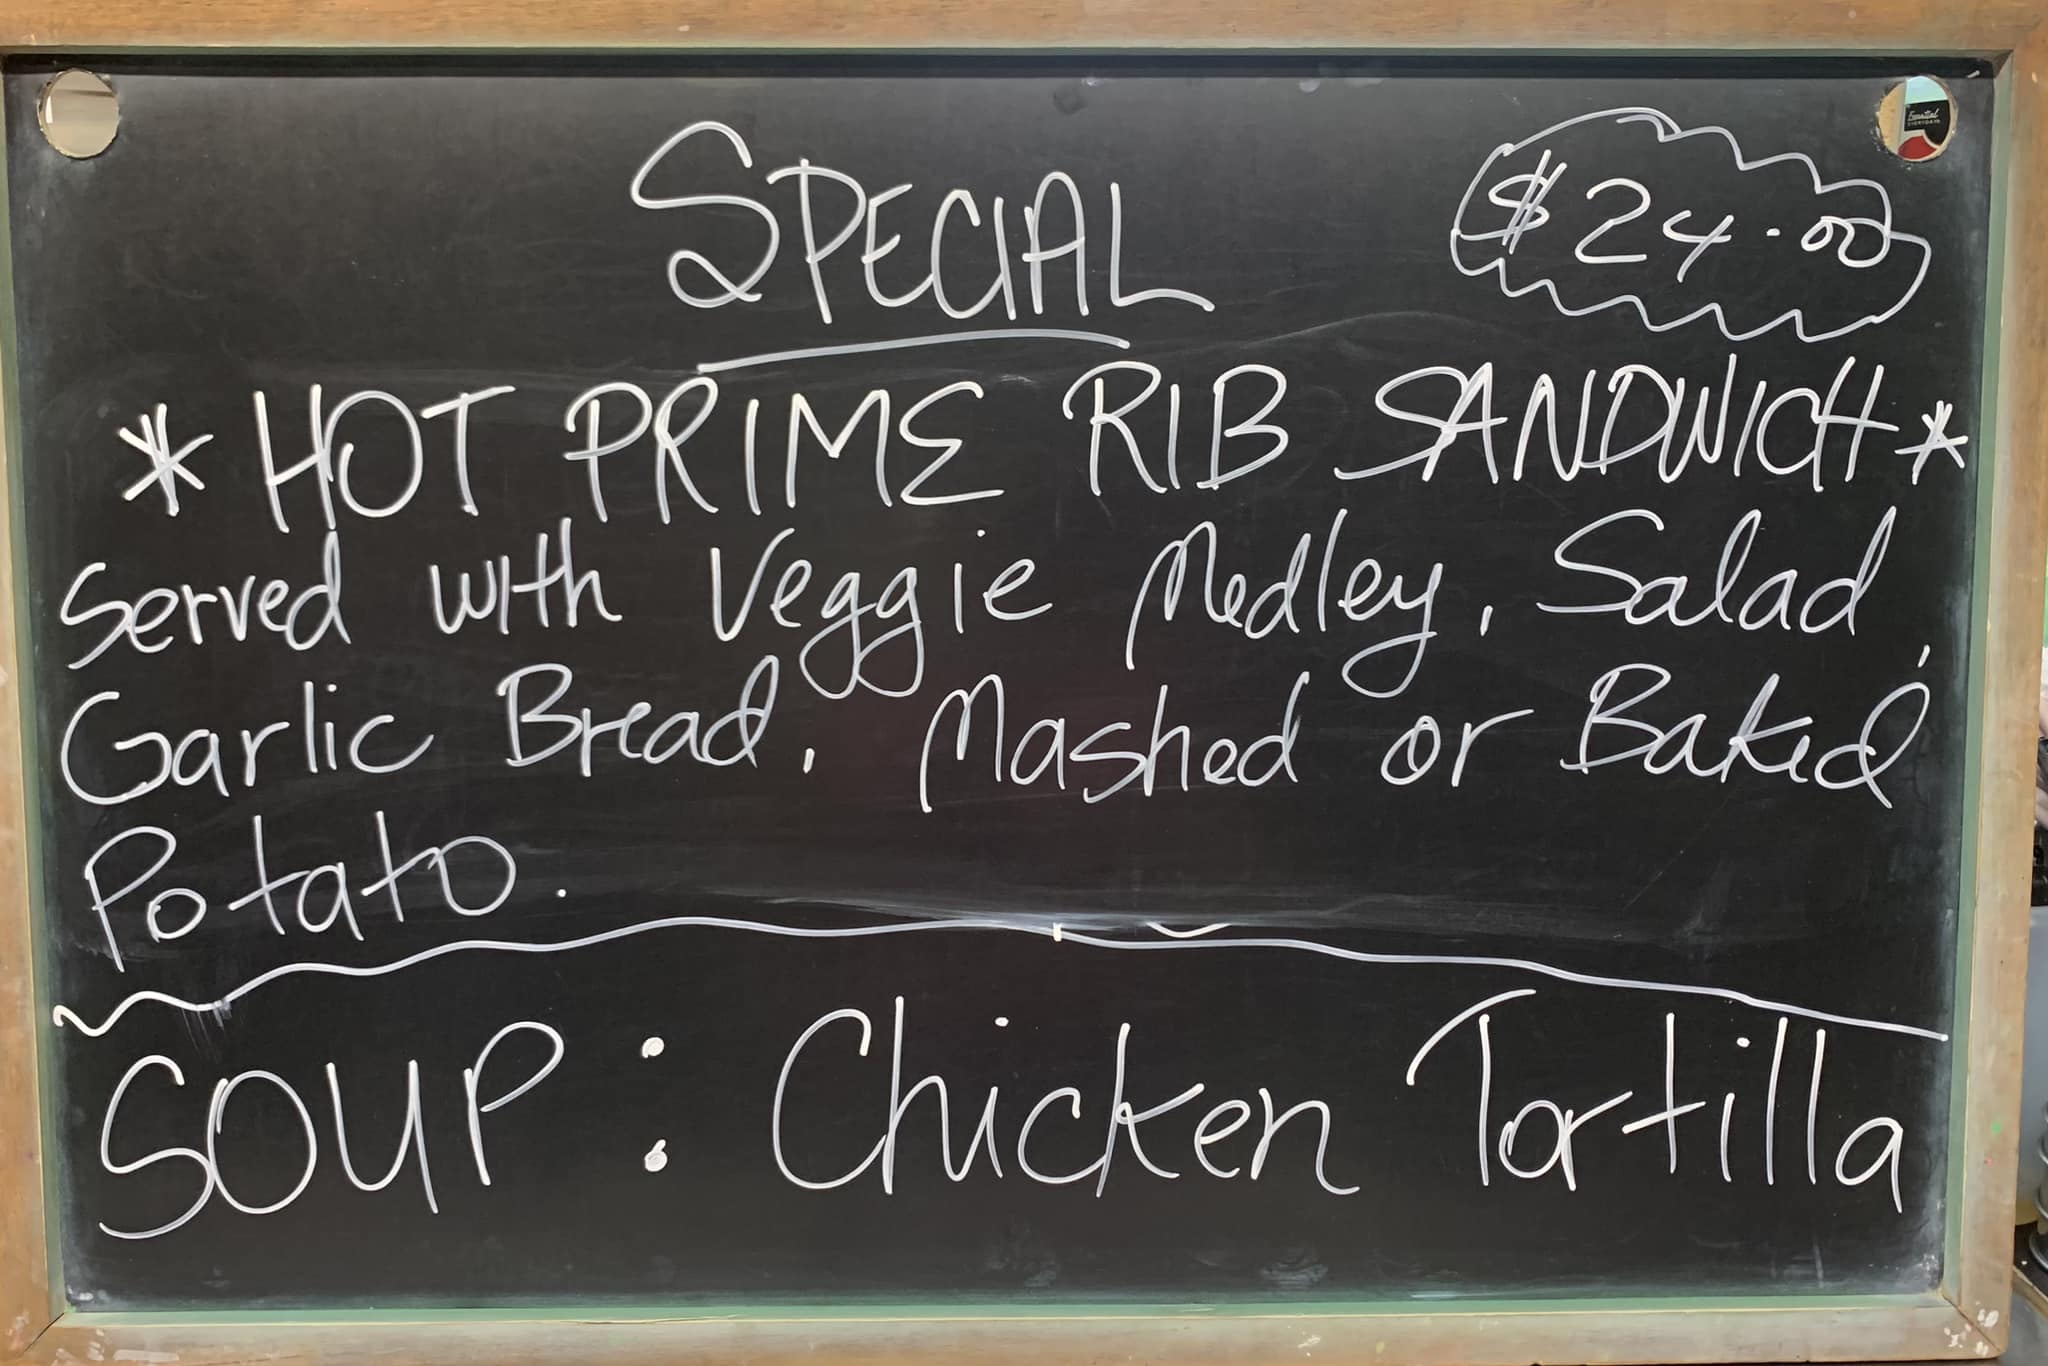 SPECIAL
$24.00
* HOT PRIME RIB SANDWICH *
Served with Veggie Medley, Salad,
Garlic Bread, Mashed or Baked
Potato.
SOUP: Chicken Tortilla
Essential
EVERYDAY